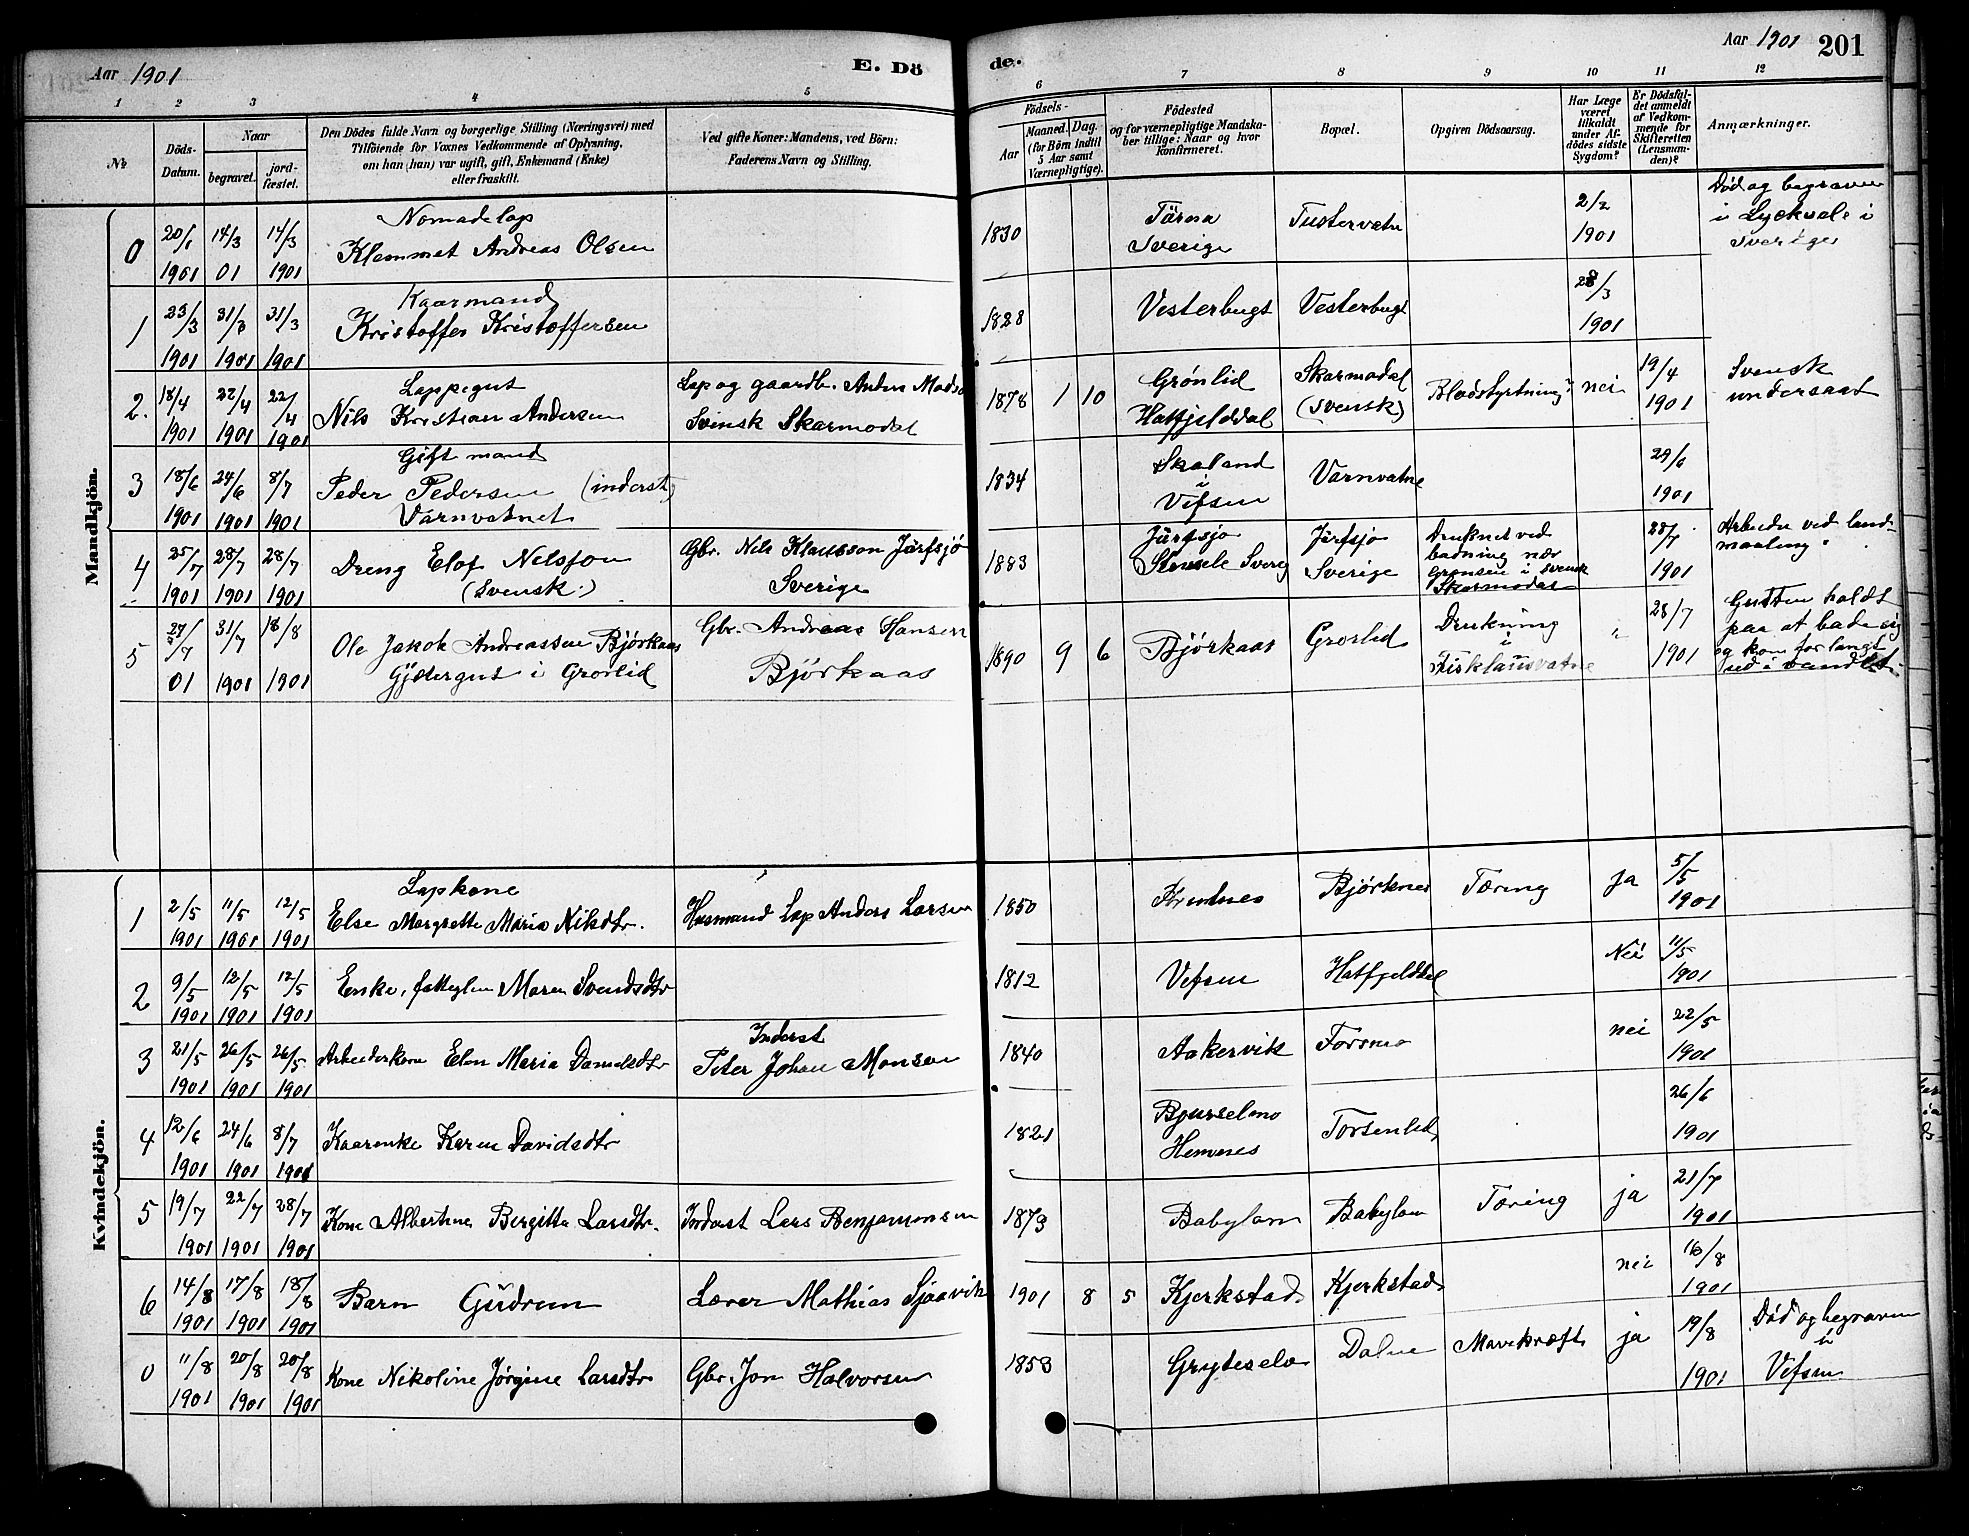 Aar 1901
E. Dö
de.
Aar 1901
201
1 2 3 4 5
6 7 8 9 10 11 12
№
Döds-Datum.
Naar
begravet.
jord-fæstet.
Den Dödes fulde Navn og borgerlige Stilling (Næringsvei) med
Tilföiende for Voxnes Vedkommende af Oplysning,
om han (hun) var ugift, gift, Enkemand (Enke)
eller fraskilt.
Ved gifte Koner: Mandens, ved Börn:
Faderens Navn og Stilling.
Födsels-
Aar
Maaned. Dag.
(for Börn indtil
5 Aar samt
Værnepligtige).
Födested
og for værnepligtige Mandska-
ber tillige: Naar og hvor
konfirmeret.
Bopæl.
Opgiven Dödsaarsag.
Har Læge
været
tilkaldt
under Af-
dödes sidste
Sygdom?
Er Dödsfal-
det anmeldt
af Vedkom-
mende for
Skifteretten
(Lensman-
den)?
Anmærkninger.
Mandkjön.
0 20/1 1901 14/3 01 14/3 1901
Nomadelap
Klemmet Andreas Olsen
1830 Tärna Sverige Tustervatn 2/2 1901
Död og begraven
i Lycksele i
Sverige
1 23/3 1901 31/3 1901 31/3 1901
Kaarmand
Kristoffer Kristoffersen
1828 Vesterbugt Vesterbugt 28/3 1901
2. 18/4 1901 22/4 1901 22/4 1901
Lappegut
Nils Kristian Andersen
Lap og gaardb. Anders Mads
Svensk Skarmodal
1878 1 10 Grönlid Hatfjelddal
Skarmodal (svensk)
Blodstyrtning? nei 19/4 1901
Svensk
undersaat
3 18/6 1901 24/6 1901 8/7 1901
Gift mand
Peder Pedersen (inderst)
Varnvatnet
1834 Skaland i Vefsen Varnvatne 29/6 1901
4 25/7 1901 28/7 1901 28/7 1901
Dreng Elof Nelsson
(Svensk:)
Gbr. Nils Klausson Järfsjö
Sverige
1883 Järfsjö Stensele Sverig
Järfsjö Sverige
Druknet ved
badning nær
Grænsen i svensk
Skarmodal
28/7 1901
Arbeider ved land-
maaling.
5 27/7 01 31/7 1901 18/8 1901
Ole Jakob Andreassen Björkaas
Gjætergut i Grorlid
Gbr. Andreas Hansen
Björkaas
1890 9 6 Björkaas Grorlid
Drukning
i
Fisklausvatne
" 28/7 1901
Gutten holdt
paa at bade sig
og kom for langt
ud i vandet.
Kvindekjön.
1 2/5 1901 11/5 1901 12/5 1901
Lapkone
Else Margrette Maria Nilsdtr.
Husmand Lap Anders Larsen
1850 Krutnes Björknes Tæring ja 5/5 1901
2 9/5 1901 12/5 1901 12/5 1901
Enke, fattiglem Maren Svendsdtr
1812 Vefsen Hatfjelddal Nei 11/5 1901
3 21/5 1901 26/5 1901 26/5 1901
Arbeiderkone Elen Maria Danielsdtr
Inderst
Peter Johan Monsen
1840 Aakervik Forsmo nei 22/5 1901
4 12/6 1901 24/6 1901 8/7 1901
Kaarenke Karen Davidsdtr
1821 Bjurselmo Hemnes Forsenlid 26/6 1901
5 19/7 1901 22/7 1901 28/7 1901
Kone Albertine Bergitta Larsdtr.
Inderst Lars Benjaminsen
1873 Babylon Babylon Tæring ja 21/7 1901
6 14/8 1901 17/8 1901 18/8 1901
Barn Gudrun
Lærer Mathias Sjaavik
1901 8 5 Kjerkstad Kjerkstad nei 16/8 1901
0 11/8 1901 20/8 1901 20/8 1901
Kone Nikoline Jörgine Larsdtr
Gbr. Jon Halvorsen
1858 Gryteselv Dalne Mavekræft ja 19/8 1901
Död og begraven
i
Vefsen